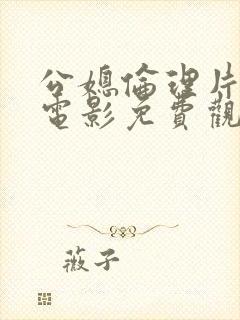 公媳倫理片
電影免費觀
薇子